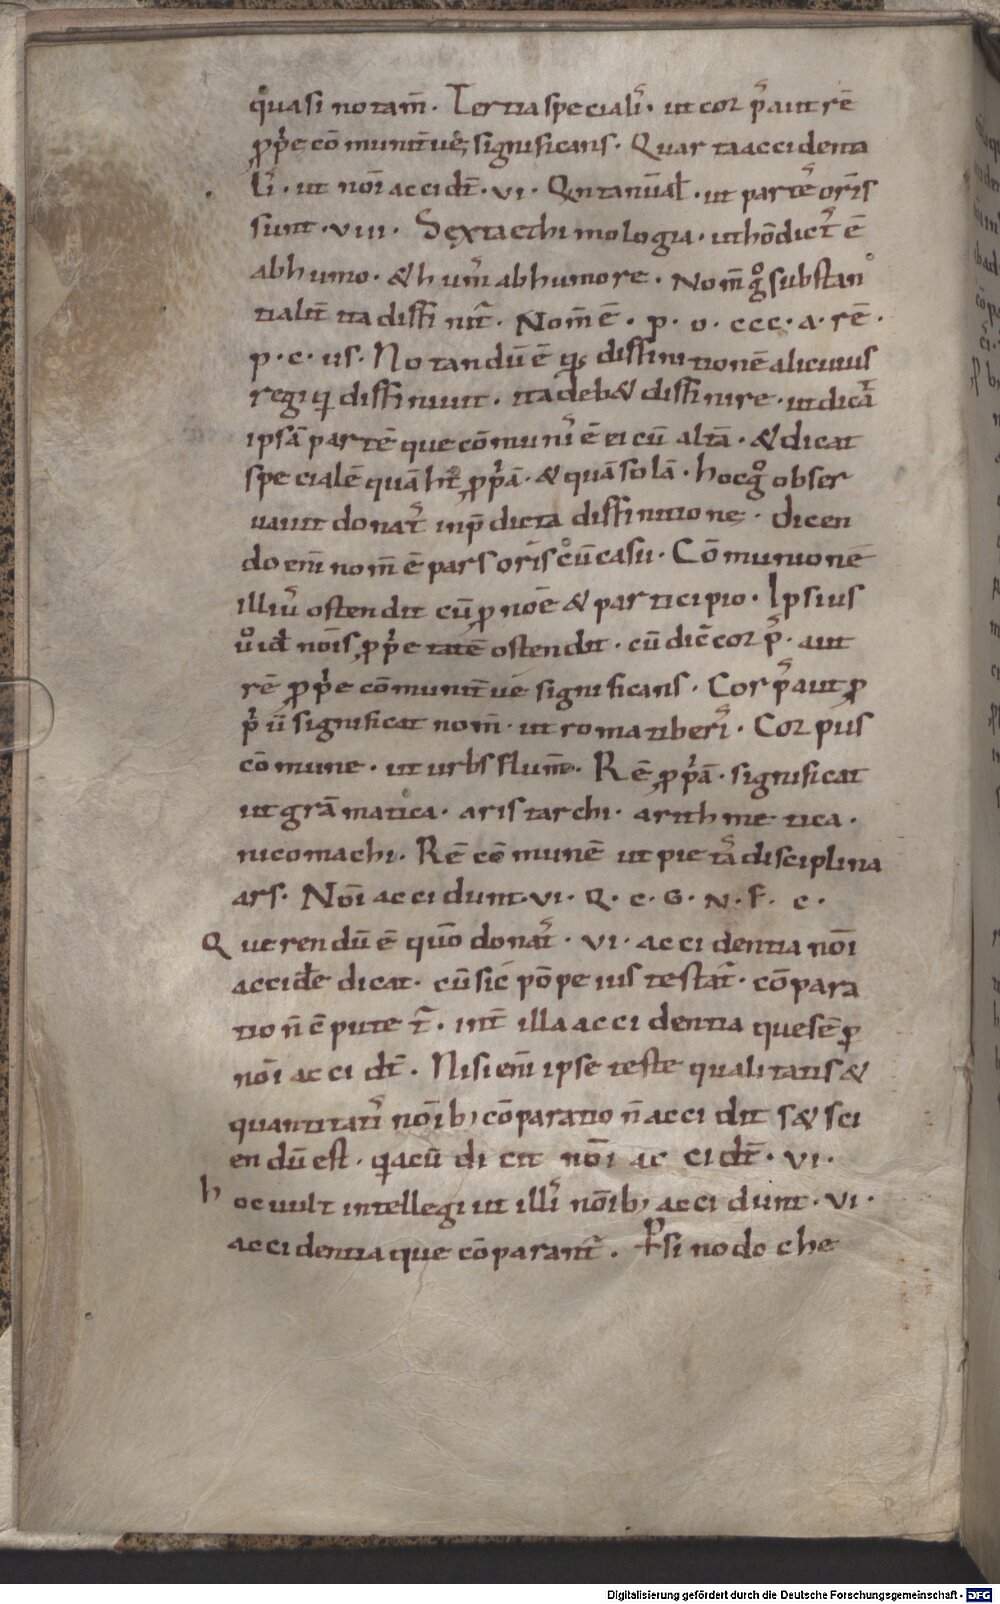 quasi notam̄. Tertia speciaľ. ut corp̄ aut rē
ꝓp̄e cōmunit̄ ue significans. Quarta accidenta
lī. ut nōi accidt̄. vi. Qinta nūał. ut partē orīs
sunt. viii. Sexta ethimologia. ut hō dict̄ ē
ab humo. & hum̄ ab humore. Nom̄ gͦ substan
tialit̄ ita diffinit̄. Nom̄ ē. p. o. c c c. a. rē.
p. c. us. Notandū ē qꝫ diffinitionē alicuius
regi qi diffiniunt. ita deb& diffinire. ut dicāt
ipsā partē que cōmunī ē ei cū altā. & dicat
specialē quā ht̄ ꝓp̄ā. & quā solā. hoc gͦ obser
uauit donat̄ in p̄dicta diffinitione. dicen
do enī nom̄ ē pars orīs cū casu. Cōmunionē
illiū ostendit cū ꝓnoē & participio. Ipsius
uͦ id nōis ꝓp̄etatē ostendit. cū dic̄ corp̄. aut
rē ꝓp̄e cōmunit̄ ue significans. Corp̄ aut ꝓ
p̄ū significat nom̄. ut roma tiberī. Corpus
cōmune. ut urbs flum̄. Rē ꝓp̄ā. significat
ut grāmatica. aristarchi. arithmetica.
nicomachi. Rē cōmunē ut pietā disciplina
ars. Nōi accidunt. vi. Q. c. G. N. F. c.
Querendū ē quō donat̄. vi. accidentia nōi
accidē dicat. cū sic pōpeius testat̄. cōpara
tio n̄ cpute t̄. int̄ illa accidentia que sēꝑ
nōi accidt̄. Nisi enī ipse teste qualitatis &
quantitatī nōibꝫ cōparatio n̄ accidit s& sci
endū est. qia cū dicit nōi accidt̄. vi.
hoc uult intellegi ut illī nōibꝫ accidunt. vi.
accidentia que cōparant̄. Psinodoche
Digitalisierung gefördert durch die Deutsche Forschungsgemeinschaft - DFG